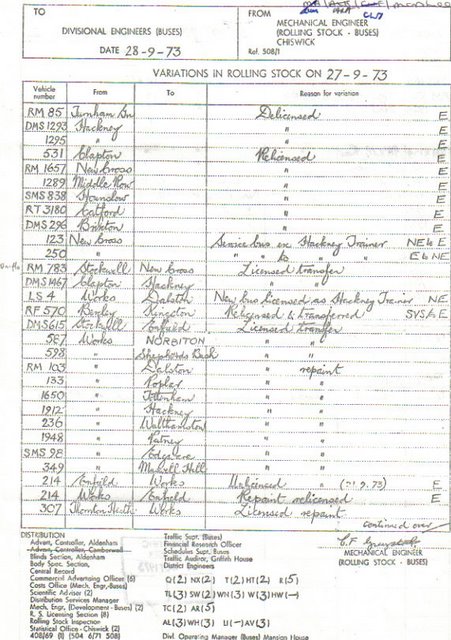 TO
DIVISIONAL ENGINEERS (BUSES)
DATE 28-9-73
FROM
MECHANICAL ENGINEER
(ROLLING STOCK - BUSES)
CHISWICK
Ref. 508/1
VARIATIONS IN ROLLING STOCK ON 27-9-73
Vehicle number From To Reason for variation
RM 85 Turnham Gn Delicensed E
DMS 1293 Hackney " E
1295 " " E
531 Clapton Relicensed E
RM 1657 New Cross " E
1289 Middle Row " E
SMS 838 Hounslow " E
RT 3180 Catford " E
DMS 296 Brixton " E
123 New Cross Service bus ex Stockey Trainer NE to E
250 " " " to " " E to NE
RM 783 Stockwell New Cross Licensed transfer
DMS 1467 Clapton Hackney "
LS 4 Works Dalston New bus licensed as Trainer NE
RF 570 Bexley Kingston Relicensed & transferred SVS & E
DMS 615 Stockwell Enfield Licensed transfer
587 Works NORBITON " "
598 " Shepherds Bush " "
RM 103 " Dalston " repaint
133 " Poplar " "
1650 " Tottenham " "
1912 " Hackney " "
236 " Walthamston " "
1948 " Putney " "
SMS 98 " Edgware " "
349 " Muswell Hill " "
214 Enfield Works Unlicensed (21.9.73) E
214 Works Enfield Repaint relicensed E
307 Thornton Heath Works Licensed repaint
continued over
MECHANICAL ENGINEER
(ROLLING STOCK - BUSES)
DISTRIBUTION
Advert. Controller, Aldenham
Advert. Controller, Camberwell
Blinds Section, Aldenham
Body Spec. Section,
Central Record
Commercial Advertising Officer (6)
Costs Office (Mech. Engr.-Buses)
Scientific Adviser (2)
Distribution Services Manager
Mech. Engr. (Development - Buses) (2)
R. S. Licensing Section (8)
Rolling Stock Inspection
Statistical Office - Chiswick (2)
408/69 (1) (504 6/71 508)
Traffic Supt. (Buses)
Financial Research Officer
Schedules Supt. Buses
Traffic Auditor, Griffith House
District Engineers
Q(2) NX(2) T(2) HT(2) R(5)
TL(3) SW(2) WN(3) W(3) HW(-)
TC(2) AR(5)
AL(3) WH(3) U(-) AV(3)
Divl. Operating Manager (Buses) Mansion House